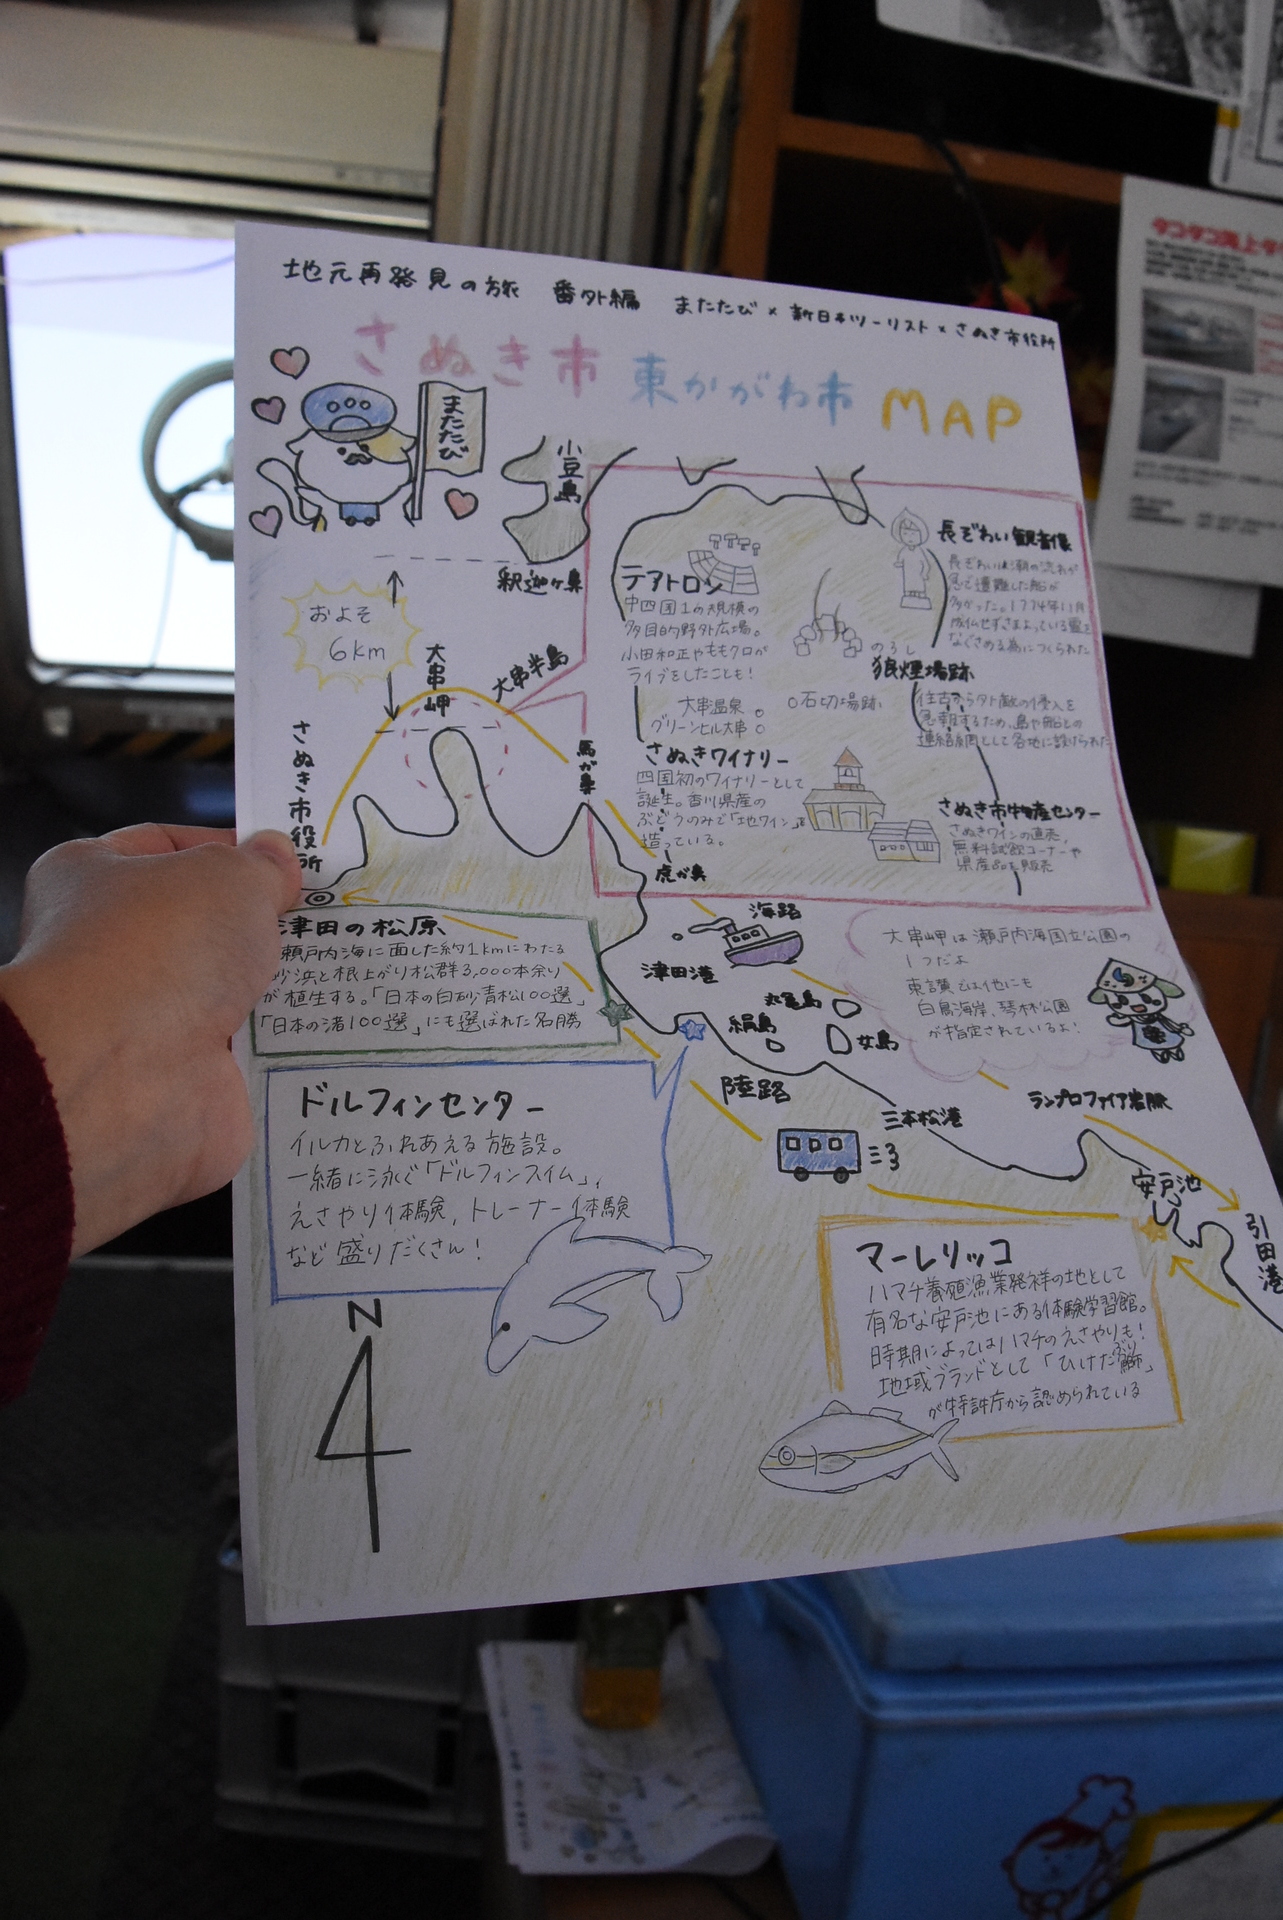 地元再発見の旅 番外編 またたび×新日本ツーリスト×さぬき市役所
さぬき市 東かがわ市 MAP
またたび
小豆島
釈迦ヶ鼻
およそ
6km
大串岬
大串半島
馬が鼻
虎が鼻
さぬき市役所
テアトロン
中四国1の規模の
多目的野外広場。
小田和正やももクロが
ライブをしたことも!
大串温泉
グリーンヒル大串
石切場跡
さぬきワイナリー
四国初のワイナリーとして
誕生。香川県産の
ぶどうのみで「地ワイン」を
造っている。
長ぞわい観音像
長ぞわいは潮の流れが
急で遭難した船が
多かった。1774年11月
成仏せずさまよっている霊を
なぐさめる為につくられた
のろし
狼煙場跡
往古から外敵の侵入を
急報するため、島や船との
連絡網として各地に設けられた
さぬき市物産センター
さぬきワインの直売、
無料試飲コーナーや
県産品を販売
津田の松原
瀬戸内海に面した約1kmにわたる
砂浜と根上がり松群3,000本余り
が植生する。「日本の白砂青松100選」
「日本の渚100選」にも選ばれた名勝
海路
津田港
丸亀島
絹島
女島
大串岬は瀬戸内海国立公園の
1つだよ
東讃では他にも
白鳥海岸、琴林公園
が指定されているよ!
ドルフィンセンター
イルカとふれあえる施設。
一緒に泳ぐ「ドルフィンスイム」、
えさやり体験、トレーナー体験
など盛りだくさん!
陸路
三本松港
ランプロファイア岩脈
安戸池
引田港
マーレリッコ
ハマチ養殖漁業発祥の地として
有名な安戸池にある体験学習館。
時期によってはハマチのえさやりも!
地域ブランドとして「ひけた鰤」
ぶり
が特許庁から認められている
N